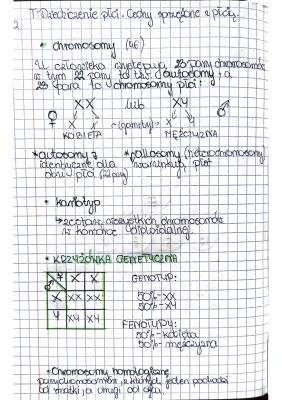 T: Dziedziczenie płci. Cechy sprzężone z płcią.
2
• chromosomy (46)
U człowieka występują 23 pary chromosomów
w tym 22 pary to tzw. autosomy, a
23 para to chromosomy płci:
XX lub XY
♀ X X ~(gamety)~ X Y ♂
KOBIETA MĘŻCZYZNA
*autosomy → *allosomy (heterochromosomy)
identyczne dla warunkują płeć
obu płci (22 pary)
• kariotyp
→ zestaw wszystkich chromosomów
w komórce diploidalnej.
• KRZYŻÓWKA GENETYCZNA
♀ X X GENOTYP:
♂
X XX XX 50% - XX
50% - XY
Y XY XY FENOTYPY:
50% - kobieta
50% - mężczyzna
• Chromosomy homologiczne
para chromosomów, z których jeden pochodzi
od matki, a drugi od ojca.